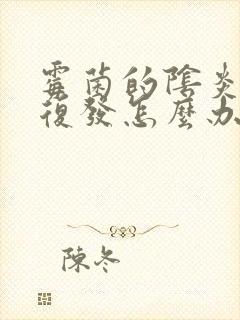 霉菌的陰炎
復發怎麼办
陳冬